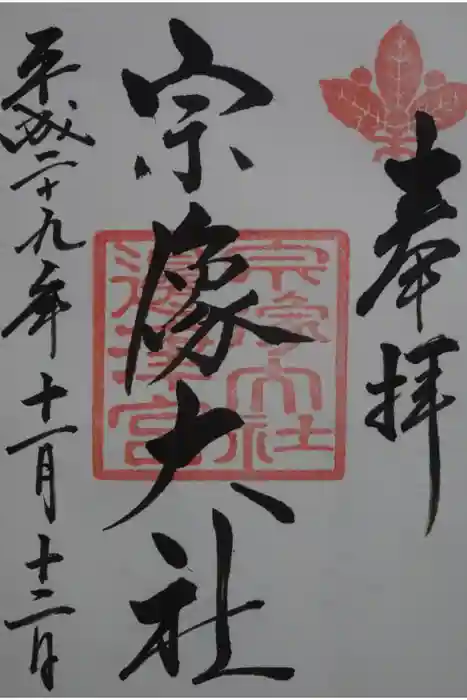 奉拝
宗像大社
宗像大社
邊津宮
平成二十九年十一月十二日